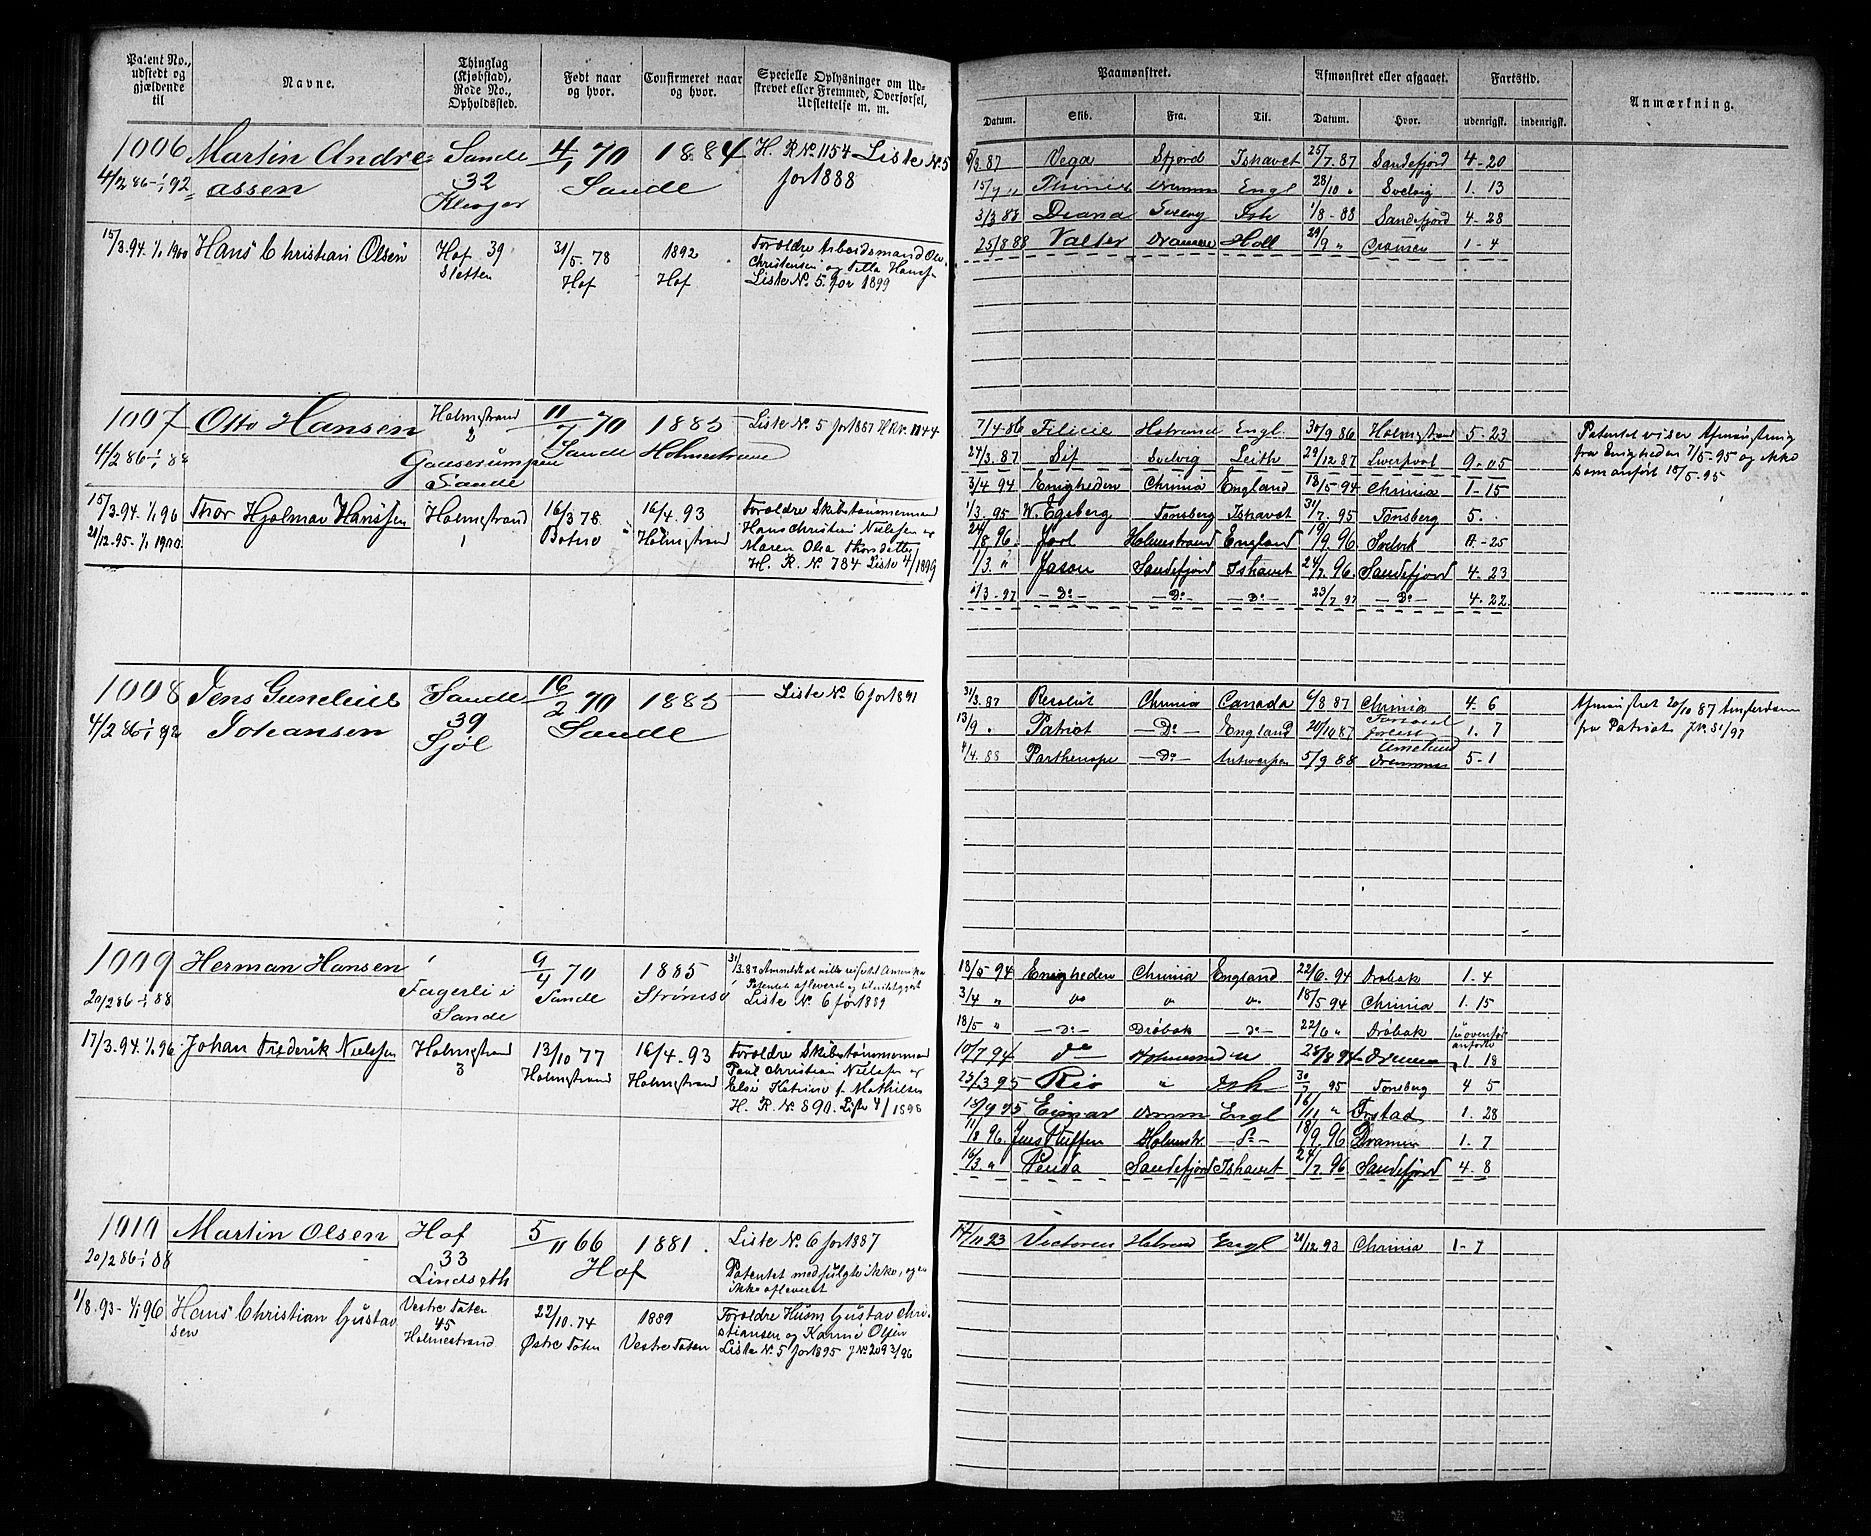 Patent No., udstedt og gjældende til
Navne.
Thinglag (Kjøbstad), Rode No., Opholdssted.
Født naar og hvor.
Confirmeret naar og hvor.
Specielle Oplysninger om Udskrevet eller Fremmed, Overførsel, Udslettelse m. m.
1006 Martin Andre= Sande 4/ 70 1884 H. R No. 1154 Liste No. 5
4/2 86 - 1/1 92 assen 32 Sande for 1888
Klever
15/3.94. 1/1 1900 Hans Christian Olsen Hof 39 31/5. 78 1892 Forældre Arbeidsmand Ole
Sletten Hof Hof Christensen og
Liste No. 5 for 1899
1007 Otto Hansen Holmestrand 11/ 70 1885 Liste No. 5 for 1887
4/2 86 - 1/1 88 2 Sande Holmestrand
Sande
15/3.94. 1/1 96 Thor Hjalmar Hanssen Holmestrand 16/3 78 16/4. 93 Forældre Skibstømmermand
21/12. 95. 1/1 1900 1 Botne Holmestrand Hans Christian Nielsen og
Maren Olea Thorsdatter
H. R. No 784 Liste 4/1899
1008 Jens Gunelius Sande 16/2 70 1885 Liste No. 6 for 1891
4/2 86 - 1/1 92 Johansen 39 Sande
Sjøl
1009 Herman Hansen 9/ 70 1885 31/3.87 Anmeldt at ville reise til Amerika
20/2 86 - 1/1 88 Fagerli i Sande Strømsø Patentet afleveret og
Sande Liste No. 6 for 1889
17/3.94. 1/1 96 Johan Frederik Nielssen Holmestrand 13/10 77 16/4. 93 Forældre Skibstømmermand
3 Holmestrand Holmestrand Paul Christian Nielsen og
Else Katrine f. Mathisen
H. R. No 890. Liste 4/1898
1010 Martin Olsen Hof 5/11 66 1881. Liste No. 6 for 1887
20/2 86 - 1/1 88 33 Hof
Lindseth Patentet medfulgte ikke, og er
ikke afleveret
1/8.93 - 1/1 96 Hans Christian Gustav Vestre Toten 22/10. 74 1889 Forældre Husm Gustav Chri-
sen 45 Østre Toten Vestre Toten stiansen og Karine Olsen
Holmestrand Liste No. 5 for 1895
Paamønstret.
Afmønstret eller afgaaet.
Fartstid.
Anmærkning.
Datum. Skib. Fra. Til. Datum. Hvor. udenrigsk. indenrigsk.
/3.87 Vega Sfjord Ishavet 25/7.87 Sandefjord 4-20
15/9 " Dramm Engl 28/10 " Svelvig 1. 13
3/3 88 Diana Svelvig Ish 1/8-88 Sandefjord 4-28
25/8 88 Valter Dramm Holl 29/9 " Dramen 1-4
7/4 86 Felicie Hstrand Engl 30/9 86 Holmestrand 5-23 Patentet viser Afmønstring
24/3. 87 Sif Svelvig Leith 29/12 87 Liverpool 9-05 fra Enigheden 7/5-95 og ikke
3/4 94 Enigheden Chrinia England 18/5-94 Chrinia 1-15 som anført 18/5-95
1/3. 95 Egeberg Tønsberg Ishavet 31/7. 95 Tønsberg 5.
24/8 96. Jarl Holmestrand England 19/9. 96 Svelvik -25
1/3. " Jason Sandefjord Ishavet 24/7. 96. Sandefjord 4. 23
1/3-97 -Do- -Do- -Do- 23/7 97 -Do- 4-22
31/3.87 Resolut Chrinia Canada 6/8 87 Chrinia 4. 6 Afmønstret 20/10 87 Amsterdam
13/9 . Patriot -Do- England 20/10 87 forlist 1. 7 fra Patriot
4/4. 88 Parthenope -Do- Antwerpen 5/9 88 Drammen 5-1
18/5 94 Enigheden Chrinia England 22/6. 94 Drøbak 1. 4
3/4 " " " " 18/5 94 Chrinia 1. 15
18/5 " -Do- Drøbak -Do- 22/6 " Drøbak
10/7 94 do Holmestrand 28/8 94 Drammen 1. 18
25/3 95 Rio " Ish 30/ 95 Tønsberg 4 5
13/9 95 Einar Dramm Engl 16/11 " Frstad 1. 28
11/8 96. Jens Steffen Holmestr -Do- 18/9. 96 Dramen 1. 7
16/3. " Penda Sandefjord Ishavet 24/7. 96 Sandefjord 4. 8
17/11 93 Hstrand Engl 21/12 93 Chrinia 1-7